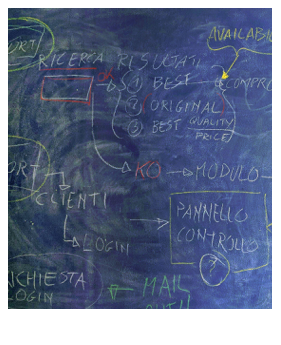 AVAILABI
ORT!
RICERCA RISULTATI
① BEST COMPR
② ORIGINAL
③ BEST QUALITY
PRICE
KO MODULO
ORT
CLIENTI
PANNELLO
CONTROLLO
LOGIN
?
ICHIESTA
LOGIN
MAIL